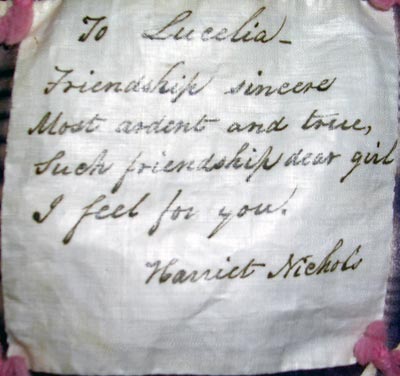 To Lucelia-
Friendship sincere
Most ardent and true,
Such friendship dear girl
I feel for you.
Harriet Nichols